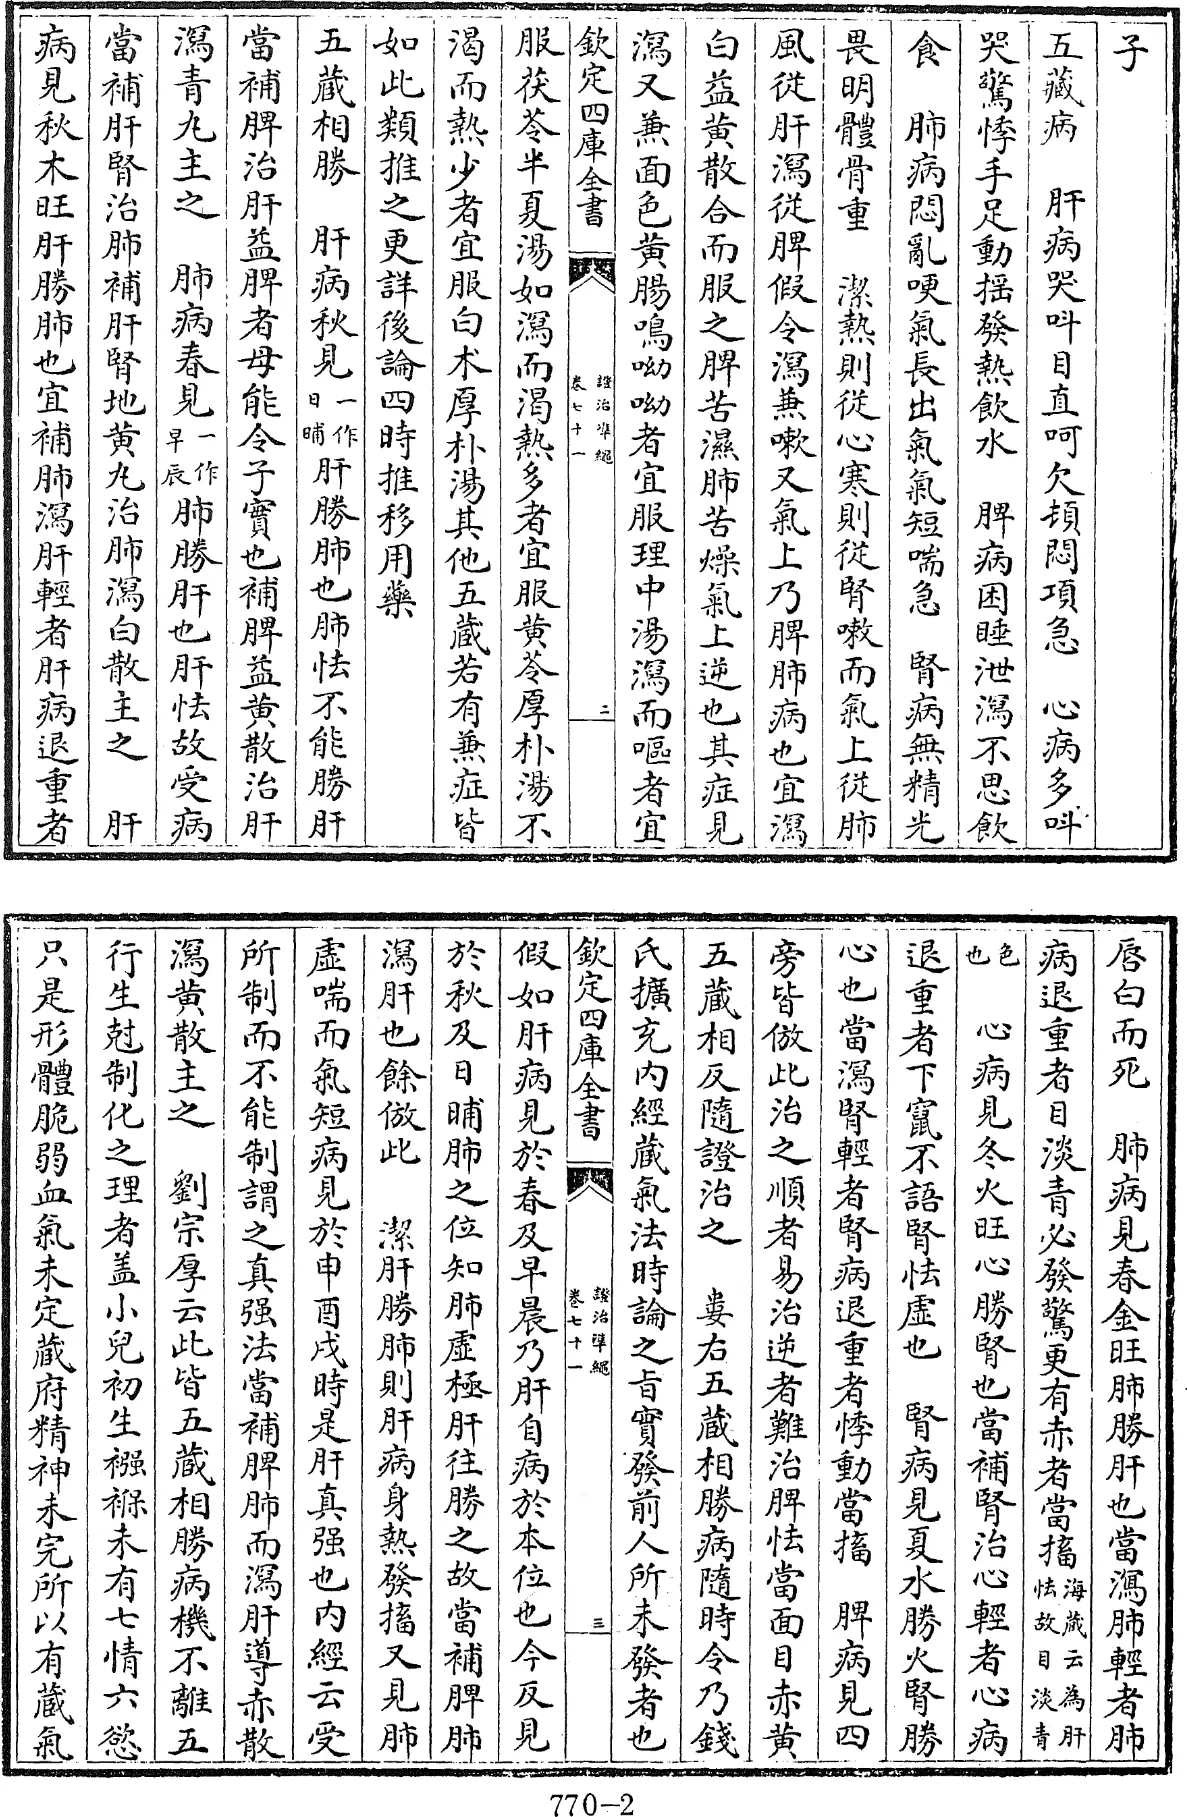 子
五藏病　肝病哭叫目直呵欠頓悶項急　心病多叫
哭驚悸手足動揺發熱飲水　脾病困睡泄瀉不思飲
食　肺病悶亂哽氣長出氣氣短喘急　腎病無精光
畏明體骨重　潔熱則從心寒則從腎嗽而氣上從肺
風從肝瀉從脾假令瀉兼嗽又氣上乃脾肺病也宜瀉
白益黄散合而服之脾苦濕肺苦燥氣上逆也其症見
瀉又兼面色黄腸鳴呦呦者宜服理中湯瀉而嘔者宜
欽定四庫全書
證治準繩
卷七十一
二
服茯苓半夏湯如瀉而渴熱多者宜服黄芩厚朴湯不
渴而熱少者宜服白朮厚朴湯其他五藏若有兼症皆
如此類推之更詳後論四時推移用藥
五藏相勝　肝病秋見一作日晡肝勝肺也肺怯不能勝肝
當補脾治肝益脾者母能令子實也補脾益黄散治肝
瀉青丸主之　肺病春見一作早辰肺勝肝也肝怯故受病
當補肝腎治肺補肝腎地黄丸治肺瀉白散主之　肝
病見秋木旺肝勝肺也宜補肺瀉肝輕者肝病退重者
唇白而死　肺病見春金旺肺勝肝也當瀉肺輕者肺
病退重者目淡青必發驚更有赤者當搐海藏云為肝怯故目淡青
色也　心病見冬火旺心勝腎也當補腎治心輕者心病
退重者下竄不語腎怯虛也　腎病見夏水勝火腎勝
心也當瀉腎輕者腎病退重者悸動當搐　脾病見四
旁皆倣此治之順者易治逆者難治脾怯當面目赤黄
五藏相反隨證治之　婁右五藏相勝病隨時令乃錢
氏擴充内經藏氣法時論之旨實發前人所未發者也
欽定四庫全書
證治準繩
卷七十一
三
假如肝病見於春及早晨乃肝自病於本位也今反見
於秋及日晡肺之位知肺虛極肝往勝之故當補脾肺
瀉肝也餘倣此　潔肝勝肺則肝病身熱發搐又見肺
虛喘而氣短病見於申酉戌時是肝真强也内經云受
所制而不能制謂之真强法當補脾肺而瀉肝導赤散
瀉黄散主之　劉宗厚云此皆五藏相勝病機不離五
行生尅制化之理者盖小兒初生襁褓未有七情六慾
只是形體脆弱血氣未定藏府精神未完所以有藏氣
770-2